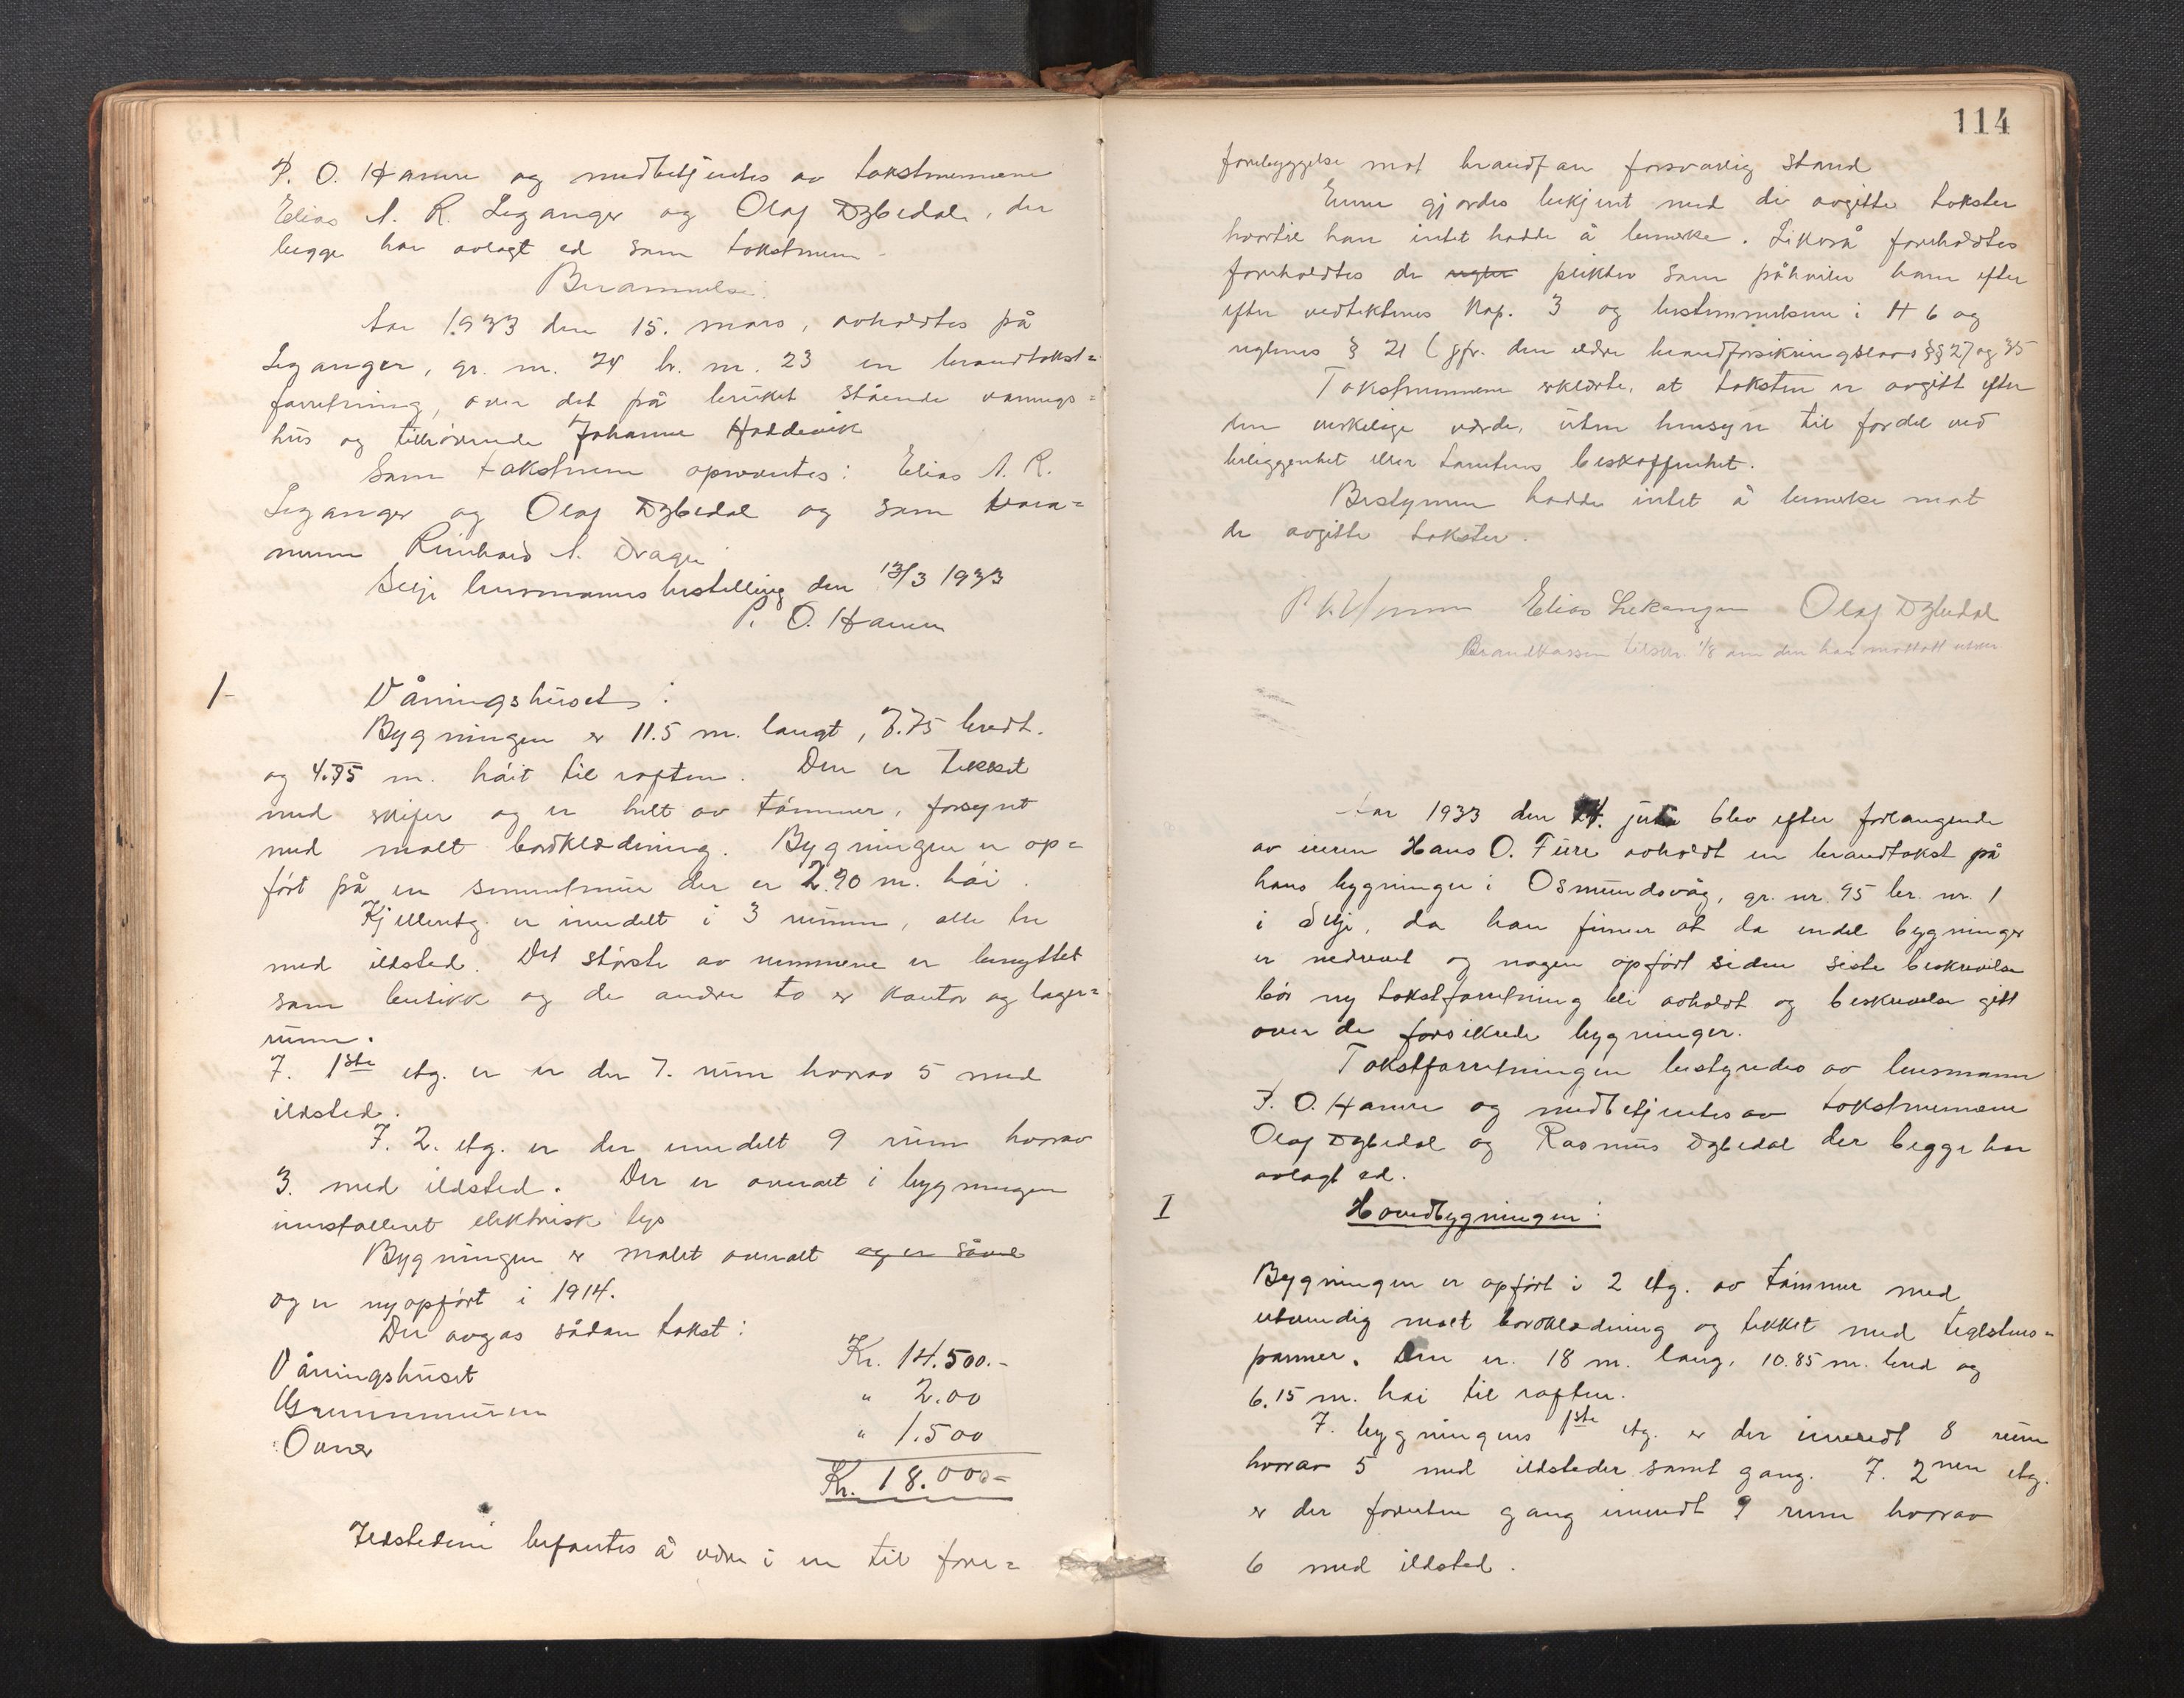 P. O. Hamre og medbetjentes av takstmennene
Elias A. R. Leganger og Olaf Dybedal, der
begge har avlagt ed som takstmenn.
Berammelse:
Aar 1933 den 15. mars, avholdtes på
Leganger, gr. nr. 74 br. nr. 23 en brandtakst=
forretning, over det på bruket stående vånings=
hus og tilhørende Johanne Hoddevik
Som takstmenn opnevntes: Elias A. R.
Leganger og Olaf Dybedal og som vara=
menn Reinhard A. Drage
Selje lensmannsbestilling den 13/3 1933
P. O. Hamre
1-
Våningshuset:
Bygningen er 11.5 m. langt, 7.75 bredt.
og 4.75 m. høit til raften. Den er tekket
med skifer og er helt av tømmer, forsynt
med malt bordklædning. Bygningen er op=
ført på en sementmur der er 2.90 m. høi.
Kjelleretg. er inndelt i 3 rumm, alle tre
med ildsted. Det største av rummene er benyttet
som butikk og de andre to er kontor og lager=
rum.
I. 1ste etg. er er der 7. rum hvorav 5 med
ildsted.
I. 2. etg. er der inndelt 9 rum hvorav
3. med ildsted. Der er overalt i bygningen
innstalleret elektrisk lys
Bygningen er malet overalt og er såvel
og er nyopført i 1914.
Der avgas sådan takst:
Våningshuset Kr. 14.500.-
Grunnmuren " 2.00
Ovner " 1.500
Kr. 18.000-
Ildstedene befantes å være i en til fore=
114
forebyggelse mot brandfare forsvarlig stand
Eieren gjordes bekjent med de avgitte takster
hvortil han intet hadde å bemerke. Likeså foreholdtes
foreholdtes de regler plikter som påhviler ham efter
efter vedtektenes Kap. 3 og bestemmelsene i H 6 og
reglenes § 21 (jfr. den eldre brandforsikringslovs §§ 27 og 35
Takstmennene erklærte, at taksten er avgitt efter
den virkelige værde, uten hensyn til fordel ved
beliggenhet eller tomtens beskaffenhet.
Bestyreren hadde intet å bemerke mot
de avgitte takster.
P. O. Hamre Elias Lekanger Olaf Dybedal
Brandkassen tilskr. 1/8 om den har mottatt
Aar 1933 den 24. juli blev efter forlangende
av eieren Hans O. Fure avholdt en brandtakst på
hans bygninger i Osmundsvåg, gr. nr. 95 br. nr. 1
i Selje, da han finner at da endel bygninger
er nedrevet og nogen opført siden siste beskrivelse
bør ny takstforretning bli avholdt og beskrivelse gitt
over de forsikrede bygninger.
Takstforretningen bestyredes av lensmann
P. O. Hamre og medbetjentes av takstmennene
Olaf Dybedal og Rasmus Dybedal der begge har
avlagt ed.
I
Hovedbygningen:
Bygningen er opført i 2 etg. av tømmer med
utvendig malt bordklædning og tekket med teglstens=
panner. Den er. 18 m. lang, 10.85 m. bred og
6.15 m. høi til raften.
I. bygningens 1ste etg. er der innredt 8 rum
hvorav 5 med ildsteder samt gang. I. 2nen etg.
er der foruten gang innredt 9 rum hvorav
6 med ildsted.